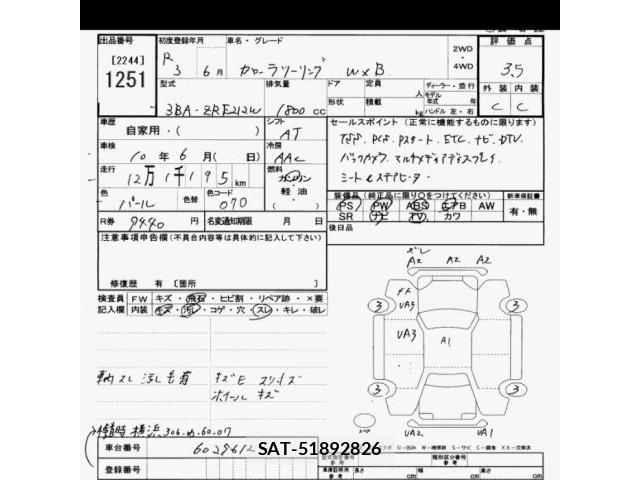 出品番号 初度登録年月 車名・グレード 評価点
[2244] R 3 年 6 月 カローラツーリング W×B 2WD・4WD 3.5
1251 型式 排気量 ドア 定員 ディーラー・並行 外装 内装
3BA-ZRE212W 1800 cc 形状 積載 kg ハンドル 左・右 C C
車歴 シフト セールスポイント (正常に機能するものに限ります)
自家用・( ) AT ナビ. PCS. Pスタート. ETC. ナビ. DTV.
車検 冷房 バックカメラ マルチメディアディスプレイ
10 年 6 月( 日) AAC シート&ステアヒーター
走行 燃料
12万1千195km ガソリン・軽油・( )
色 色替 色コード 装備品 (純正品に限り○をつけてください) 新車保証書
パール 070 PS PW ABS エアB AW 有・無
R券 9440 名変通知期限 月 日 SR ナビ TV カワ
注意事項申告欄(不具合内容等は具体的に記入して下さい) 後日品
修復歴 有 [箇所 ]
検査員 FW キズ・飛石・ヒビ割・リペア跡・×要
記入欄 内装 キズ・汚レ・コゲ・穴・スレ・キレ・破レ
ズレ
A2 A2 A2
3 3
UA3
UA3 A1
3 3
UA2 UA1
車内スレ 汚レ 毛有 キズE スリキズ
ホイールキズ
横浜 306.め.60-07
車台番号 6029612
登録番号
SAT-51892826
型式指定番号 類別区分番号
参考 参考
車体証明書用 参考 長さ cm 幅 cm 高さ cm